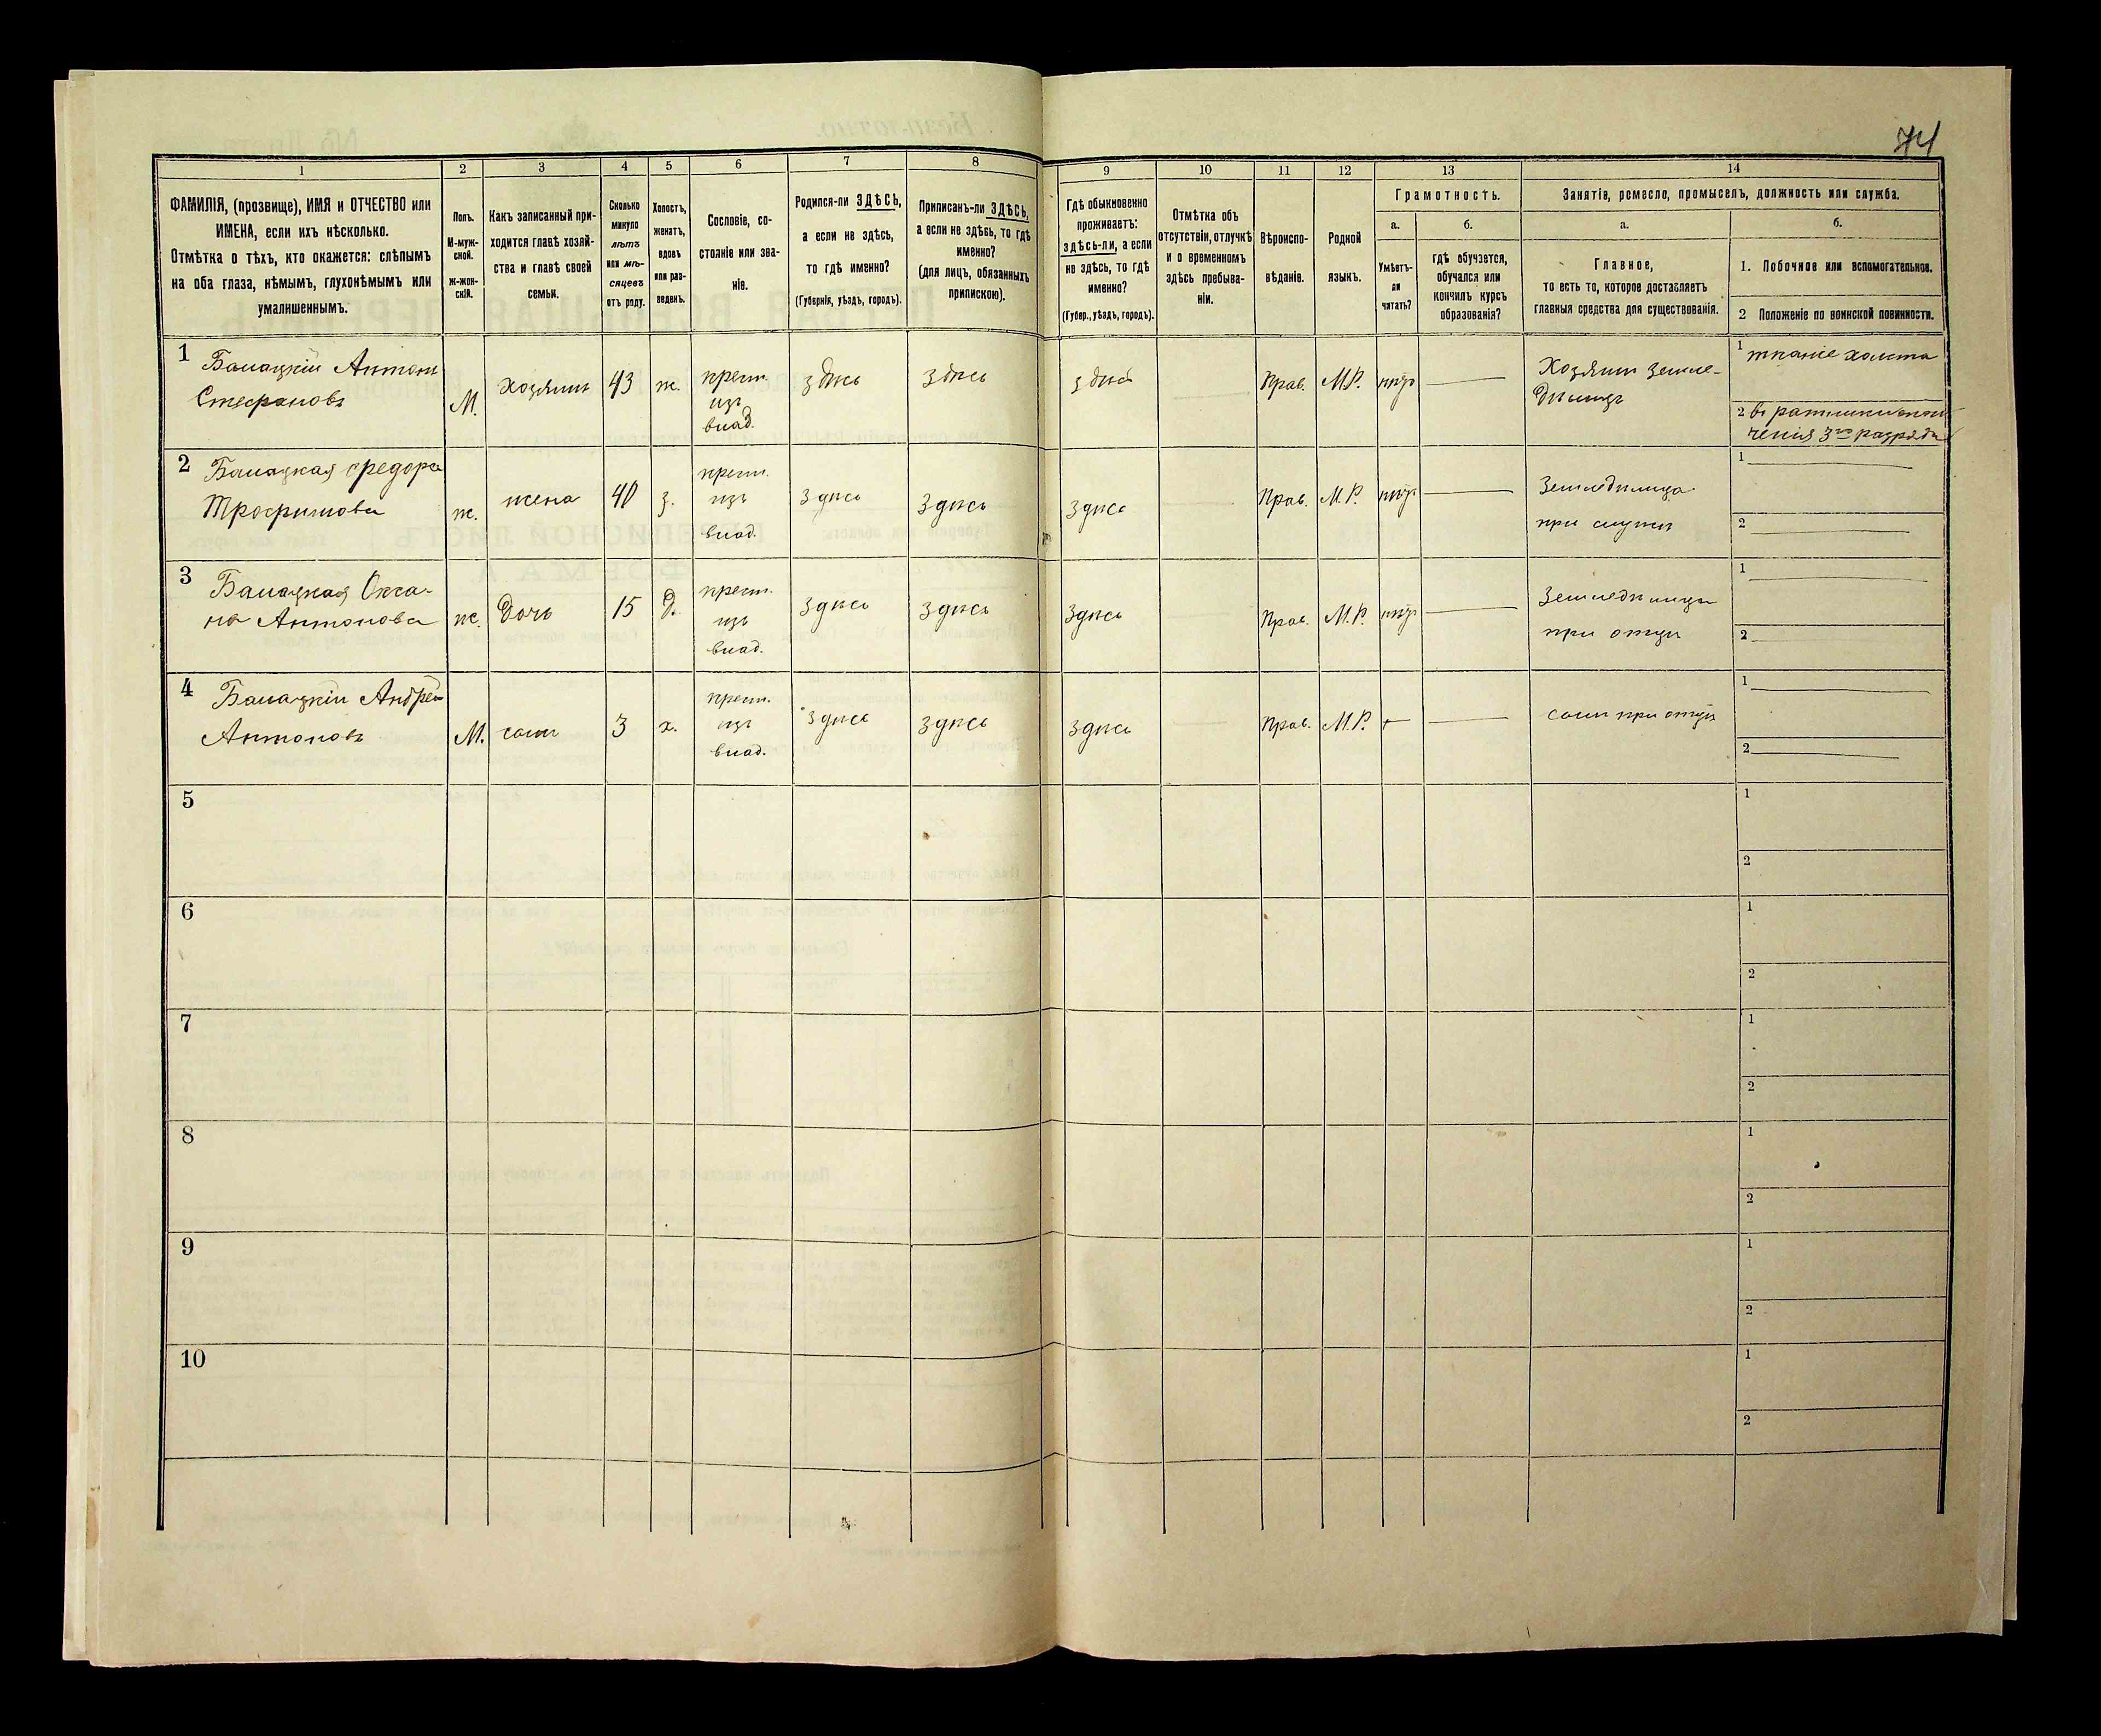 74
1
2
3
4
5
6
7
8
9
10
11
12
13
14
ФАМИЛІЯ, (прозвище), ИМЯ и ОТЧЕСТВО или
ИМЕНА, если ихъ нѣсколько.
Отмѣтка о тѣхъ, кто окажется: слѣпымъ
на оба глаза, нѣмымъ, глухонѣмымъ или
умалишеннымъ.
Полъ.
М-муж-
ской.
ж-жен-
скій.
Какъ записанный при-
ходится главѣ хозяй-
ства и главѣ своей
семьи.
Сколько
минуло
лѣтъ
или мѣ-
сяцевъ
отъ роду.
Холостъ,
женатъ,
вдовъ
или раз-
веденъ.
Сословіе, со-
стояніе или зва-
ніе.
Родился-ли ЗДѢСЬ,
а если не здѣсь,
то гдѣ именно?
(Губернія, уѣздъ, городъ).
Приписанъ-ли ЗДѢСЬ,
а если не здѣсь, то гдѣ
именно?
(для лицъ, обязанныхъ
припискою).
Гдѣ обыкновенно
проживаетъ:
здѣсь-ли, а если
не здѣсь, то гдѣ
именно?
(Губер., уѣздъ, городъ).
Отмѣтка объ
отсутствіи, отлучкѣ
и о временномъ
здѣсь пребыва-
ніи.
Вѣроиспо-
вѣданіе.
Родной
языкъ.
Грамотность.
а.
Умѣетъ-
ли
читать?
б.
гдѣ обучается,
обучался или
кончилъ курсъ
образованія?
Занятія, ремесло, промыселъ, должность или служба.
а.
Главное,
то есть то, которое доставляетъ
главныя средства для существованія.
б.
1. Побочное или вспомогательное.
2 Положеніе по воинской повинности.
1
Антонъ
Стефановъ
М.
хозяинъ
43
ж.
крест.
изъ
влад.
здѣсь
здѣсь
здѣсь
Прав.
М.Р.
нѣтъ
Хозяинъ земле-
дѣлецъ
1 тканіе холста
2
3го разряда
2
Федора
Трофимова
ж.
жена
40
з.
крест.
изъ
влад.
здѣсь
здѣсь
здѣсь
Прав.
М.Р.
нѣтъ
Земледѣлица
при мужѣ
1
2
3
Окса-
на Антонова
ж.
дочь
15
д.
крест.
изъ
влад.
здѣсь
здѣсь
здѣсь
Прав.
М.Р.
нѣтъ
Земледѣлица
при отцѣ
1
2
4
Андрей
Антоновъ
М.
сынъ
3
х.
крест.
изъ
влад.
здѣсь
здѣсь
здѣсь
Прав.
М.Р.
сынъ при отцѣ
1
2
5
1
2
6
1
2
7
1
2
8
1
2
9
1
2
10
1
2